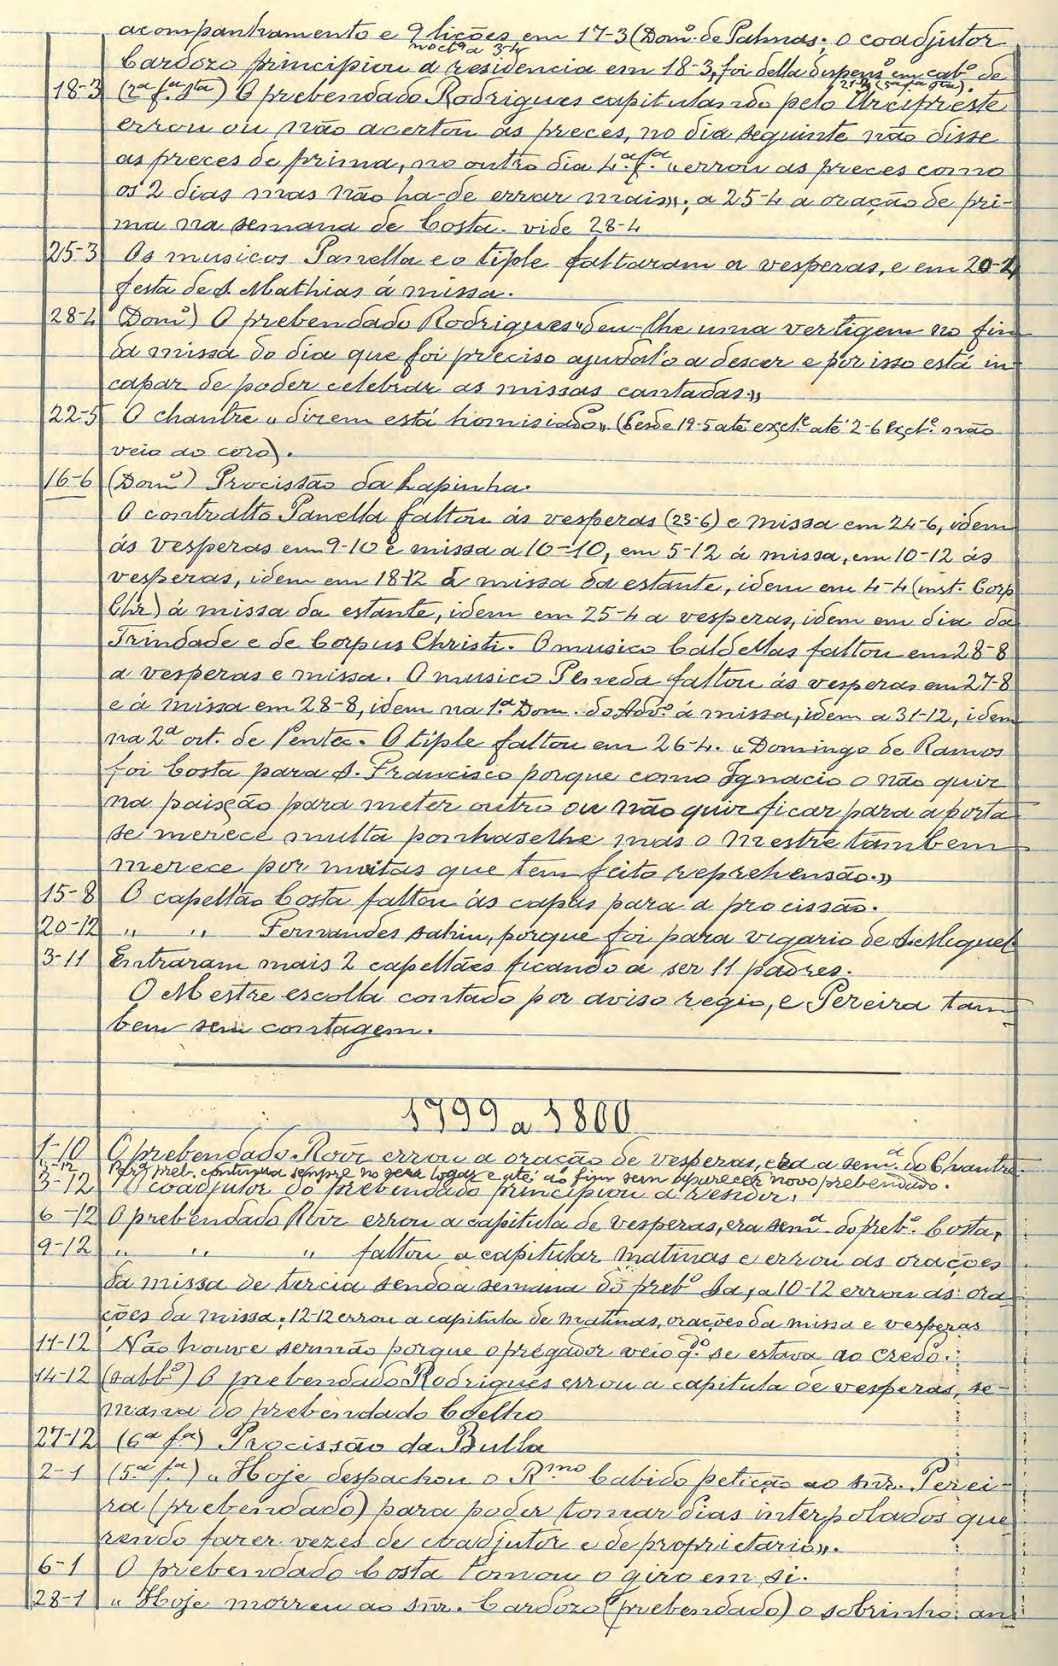 acompanhamento e 9 lições em 17-3 (Domº. de Palmas; o coadjutor
Cardozo principiou a residencia em 18-3, foi della dispensº em cabº de
18-3 (2ª fª stª) O prebendado Rodrigues capitulando pelo Arcipreste
errou ou não acertou as preces, no dia seguinte não disse
as preces de prima, no outro dia 4.ª fª. «errou as preces como
os 2 dias mas não ha-de errar mais»; a 25-4 a oração de pri-
ma na semana de Costa. vide 28-4
25-3 Os musicos Panella e o tiple faltaram a vesperas, e em 20-2
festa de S. Mathias á missa.
28-4 (Domº) O prebendado Rodrigues «deu-lhe uma vertigem no fim
da missa do dia que foi preciso ajudalo a descer e por isso está in-
capaz de poder celebrar as missas cantadas»
22-5 O chantre «dizem está homisiado». (Desde 19-5 até exclº até 2-6 exclº. não
veio ao coro).
16-6 (Domº) Procissão da Lapinha.
O contralto Panella faltou ás vesperas (23-6) e missa em 24-6, idem
ás vesperas em 9-10 e missa a 10-10, em 5-12 á missa, em 10-12 ás
vesperas, idem em 18-12 á missa da estante, idem em 4-4 (inst. Corp.
Chr.) á missa da estante, idem em 25-4 a vesperas, idem em dia da
Trindade e de Corpus Christi. O musico Caldellas faltou em 28-8
a vesperas e missa. O musico Peneda faltou ás vesperas em 27-8
e á missa em 28-8, idem na 1.ª Dom. do Advº. á missa, idem a 31-12, idem
na 2ª oit. de Pentec. O tiple faltou em 26-4. «Domingo de Ramos
foi Costa para S. Francisco porque como Ignacio o não quiz
na paixção para meter outro ou não quiz ficar para a porta
se merece multa ponhaselhe mas o mestre tambem
merece por muitas que tem feito reprehensão.»
15-8 O capellão Costa faltou ás capas para a procissão.
20-12 " " Fernandes sahiu, porque foi para vigario de S. Miguel
3-11 Entraram mais 2 capellães ficando a ser 11 padres.
O Mestre escolla contado por aviso regio, e Pereira tam-
bem sem contagem.
1799 a 1800
1-10 O prebendado Roiz errou a oração de vesperas, era a semª do Chantre.
preb. continua sempre no seu logar e até ao fim sem aparecer novo prebendado.
3-12 O coadjutor do prebendado principiou a residir.
6-12 O prebendado Roiz errou a capitula de vesperas, era semª do prebº. Costa,
9-12 " " " faltou a capitular matinas e errou as orações
da missa de tercia sendo a semana do prebº Sa, a 10-12 errou as ora-
ções da missa; 12-12 errou a capitula de matinas, orações da missa e vesperas
11-12 Não houve sermão porque o prégador veio qdo. se estava ao credo.
14-12 (sabbº) O prebendado Rodrigues errou a capitula de vesperas, se-
mana do prebendado Coelho
27-12 (6ª fª) Procissão da Bulla
2-1 (5.ª fª) «Hoje despachou o Rmo Cabido petição ao snr. Perei-
ra (prebendado) para poder tomar dias interpolados que-
rendo fazer vezes de coadjutor e de proprietario».
6-1 O prebendado Costa tomou o giro em si.
28-1 «Hoje morreu ao snr. Cardozo (prebendado) o sobrinho; an-